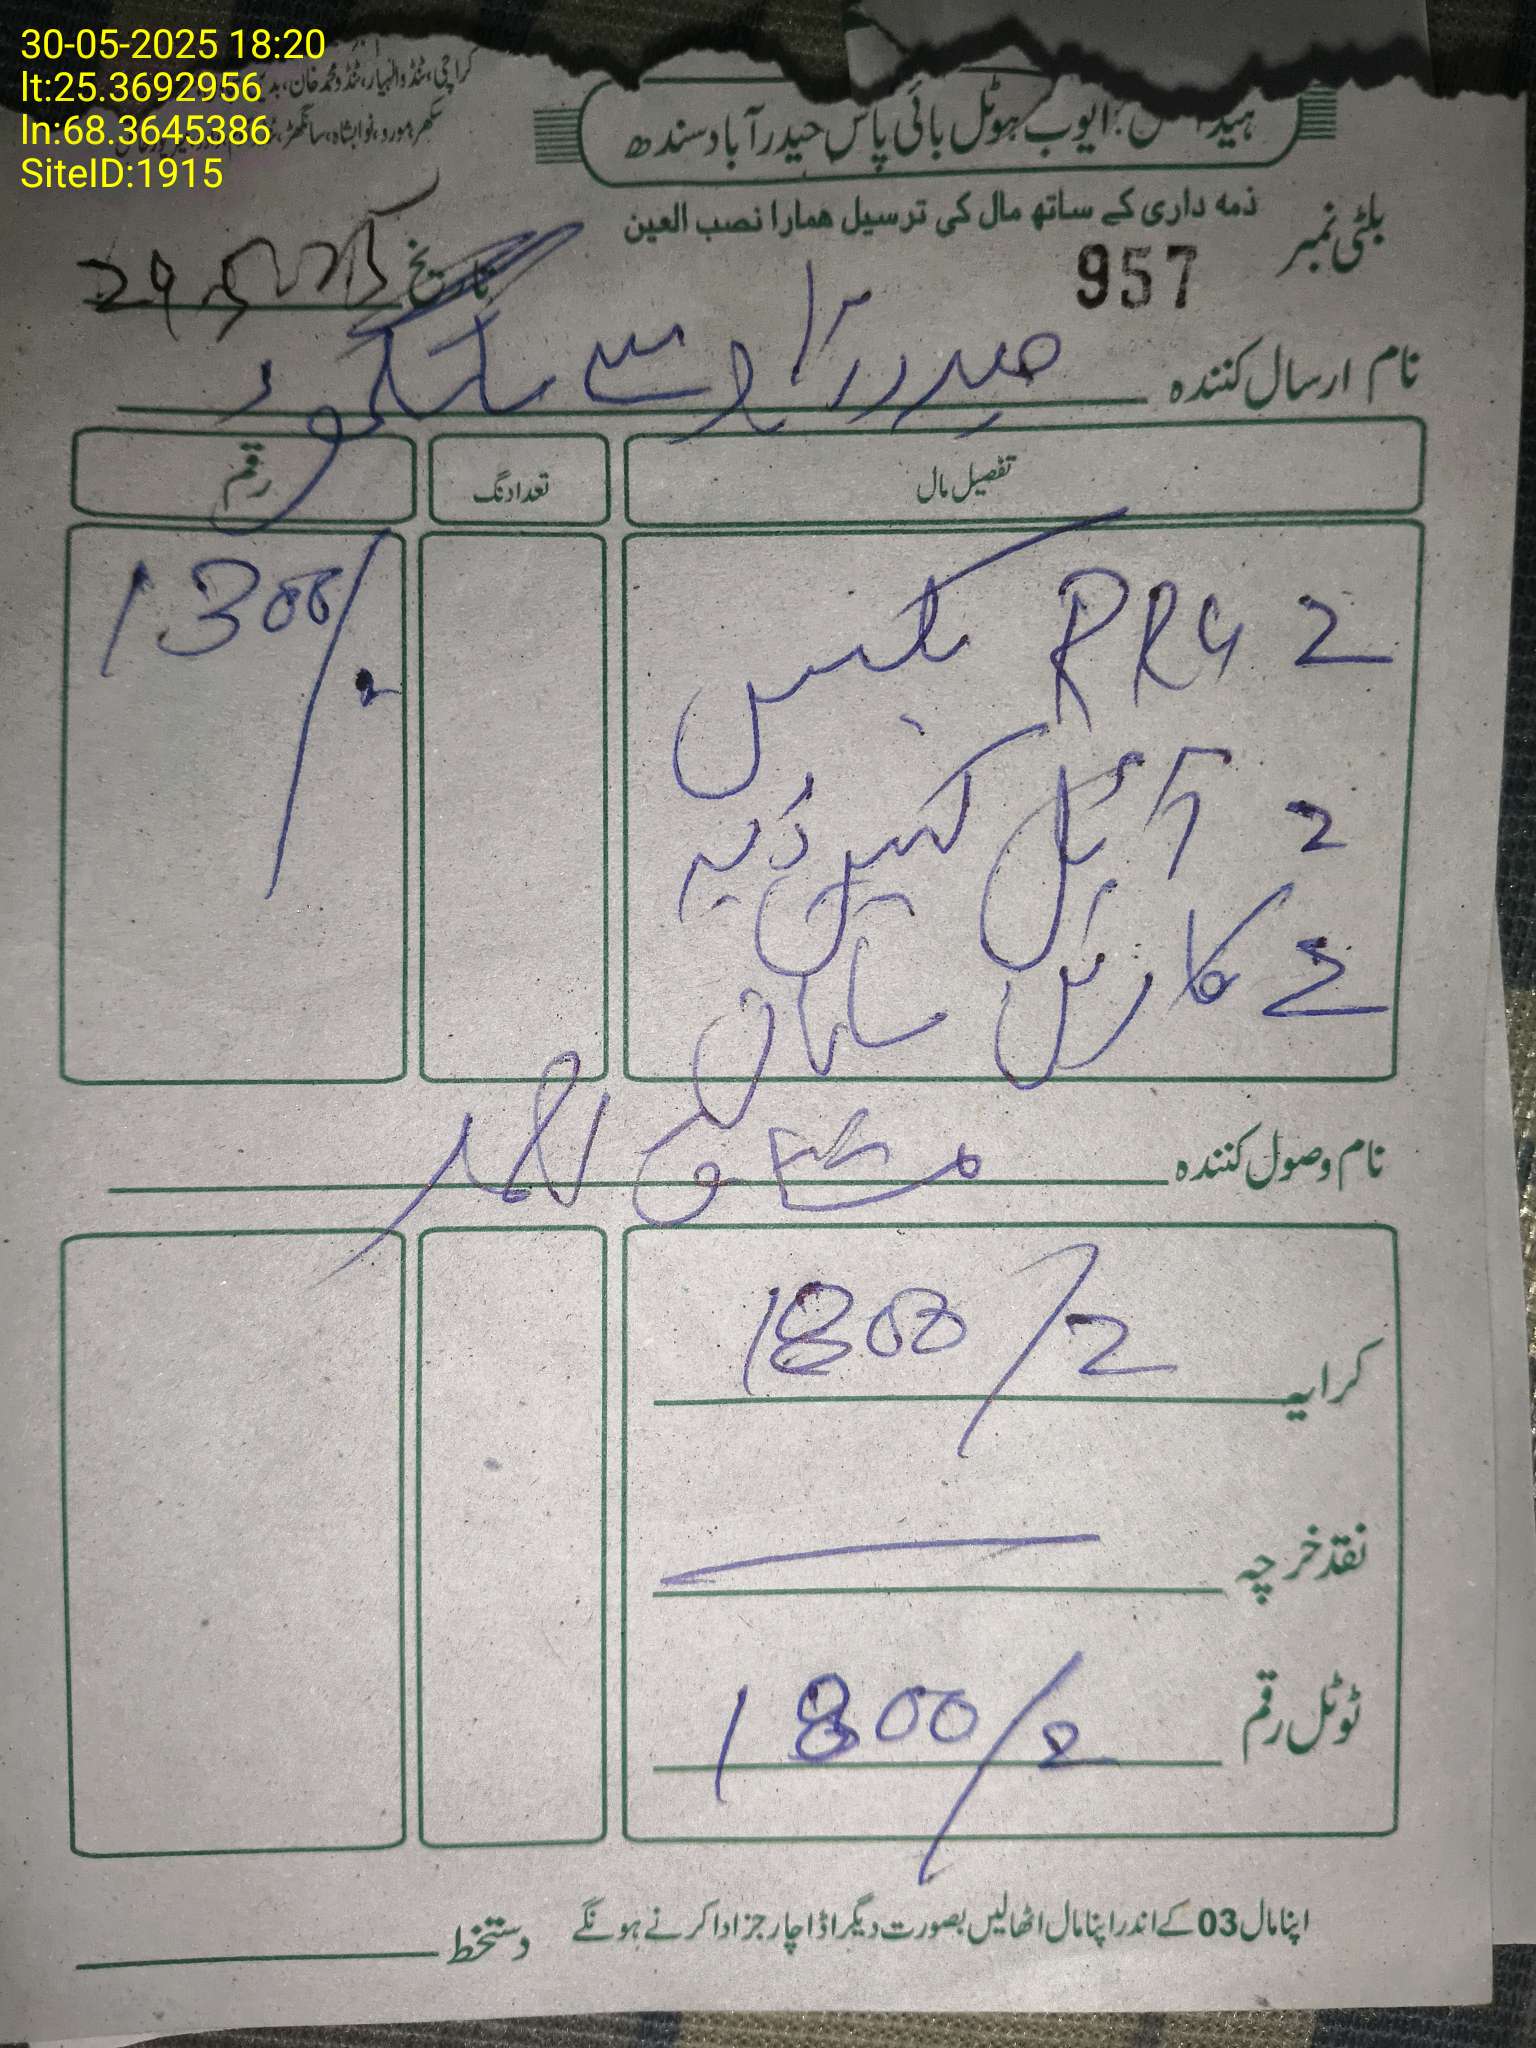 30-05-2025 18:20
lt:25.3692956
ln:68.3645386
SiteID:1915
کراچی، ٹنڈوالہیار، ٹنڈو محمد خان،
سکھر، مورو، نوابشاہ، سانگھڑ،
ایوب ہوٹل بائی پاس حیدرآباد سندھ
ذمہ داری کے ساتھ مال کی ترسیل ہمارا نصب العین
بلٹی نمبر 957
تاریخ
نام ارسال کنندہ حیدرآباد سے
تفصیل مال تعداد نگ رقم
2 بکس 1300/
2 آئل
2 کاٹن سامان
نام وصول کنندہ مشتاق احمد
کرایہ 1800/2
نقد خرچہ
ٹوٹل رقم 1800/2
اپنا مال 03 کے اندر اپنا مال اٹھالیں بصورت دیگر اڈا چارجز ادا کرنے ہونگے دستخط